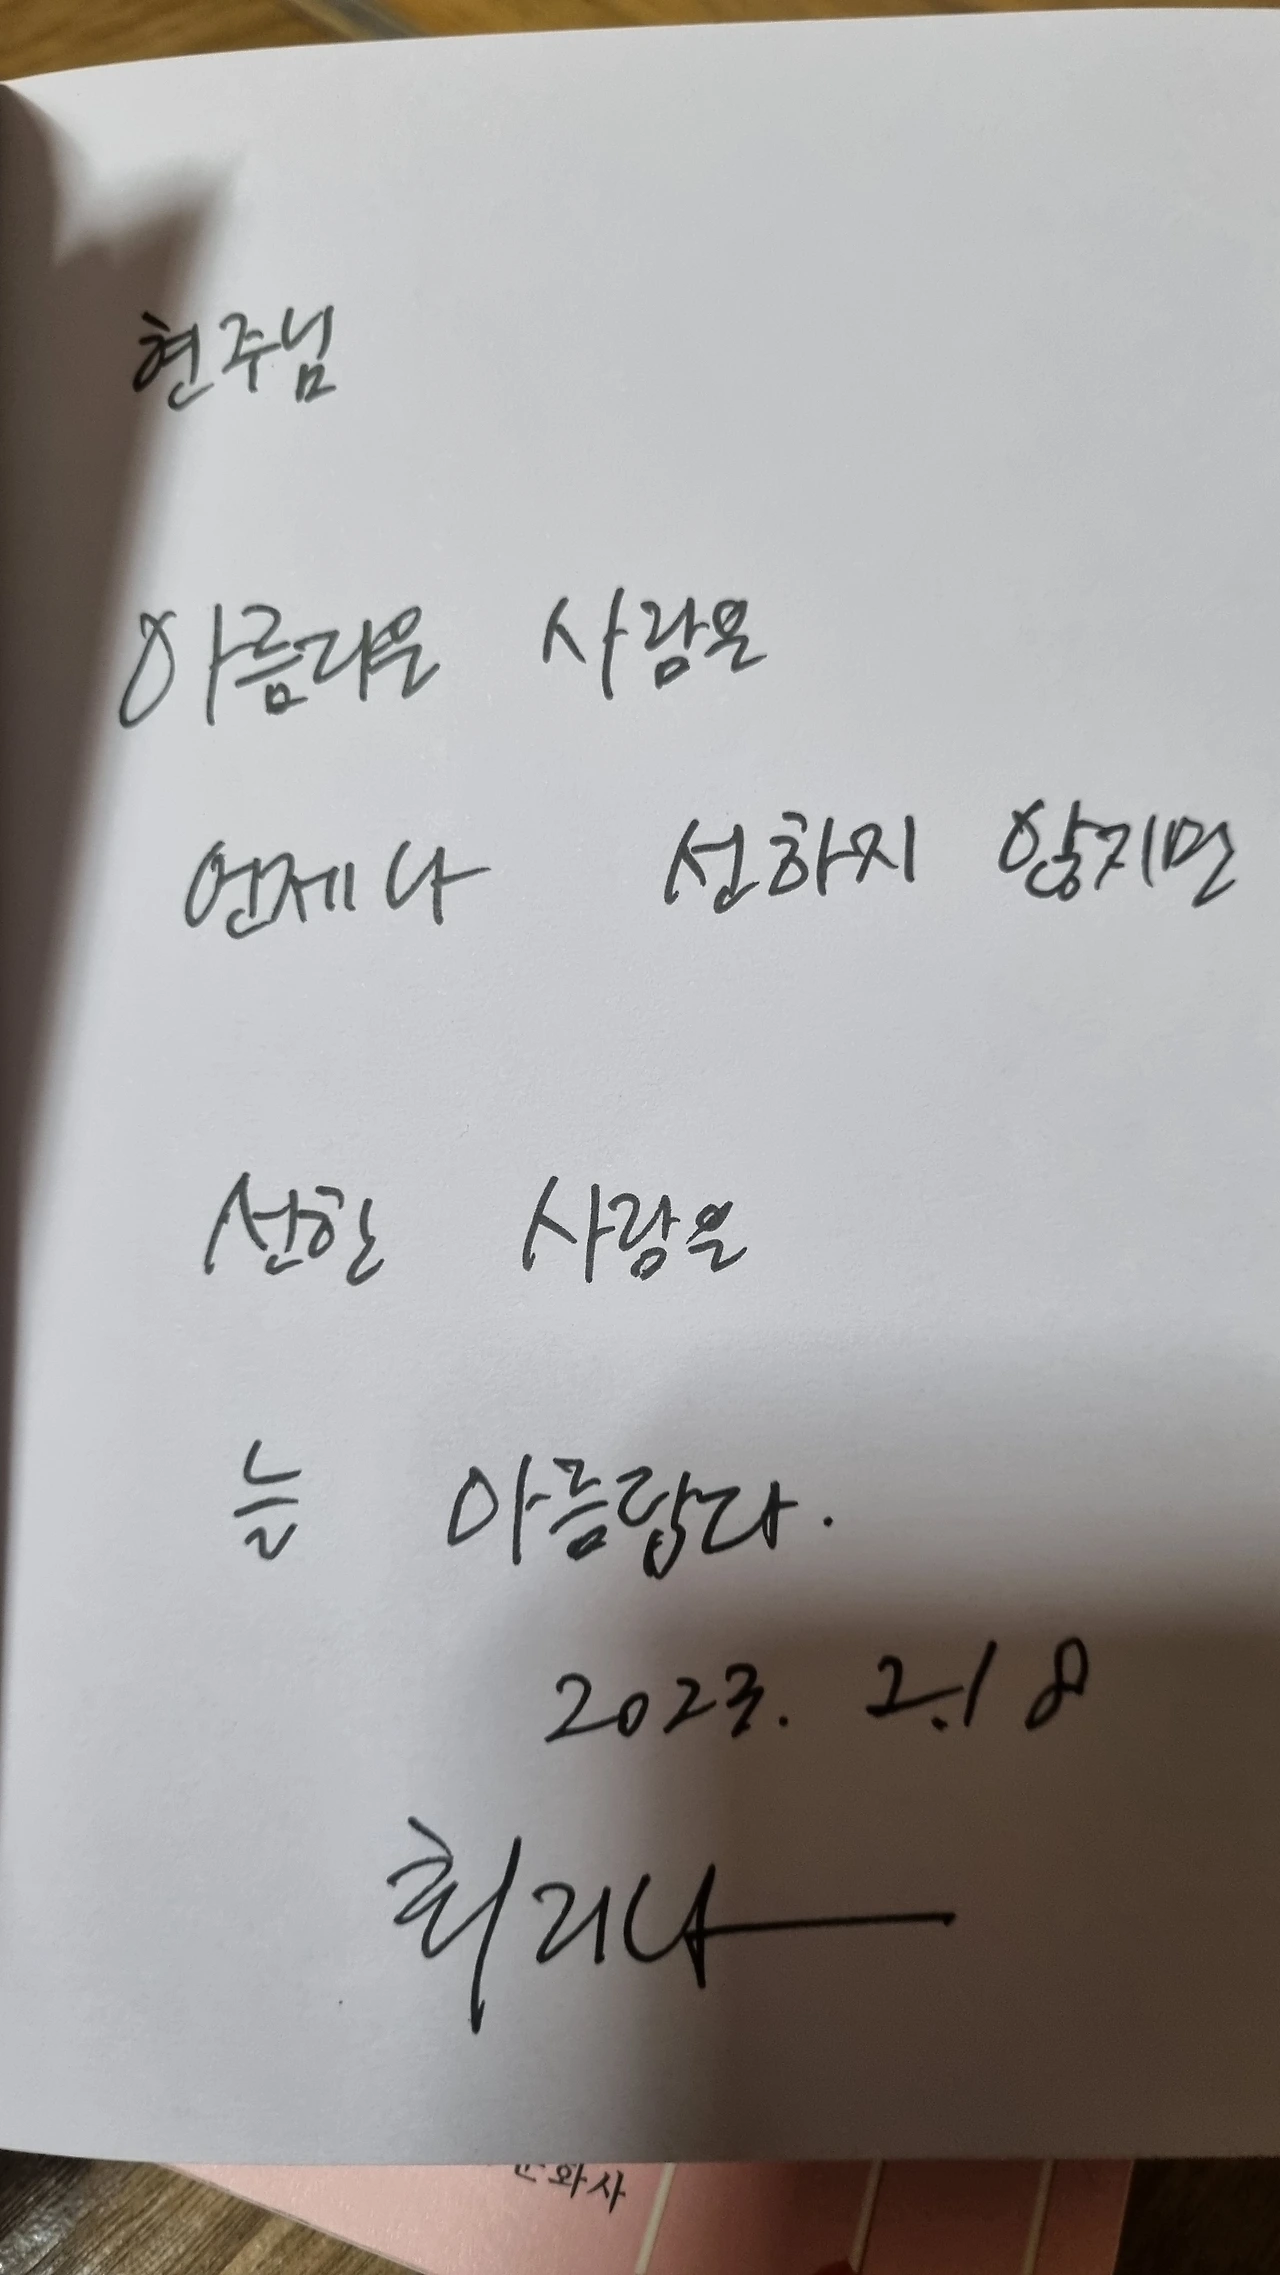 현주님
아름다운 사람은
언제나 선하지 않지만
선한 사람은
늘 아름답다.
2023. 2.18
최리나
문화사